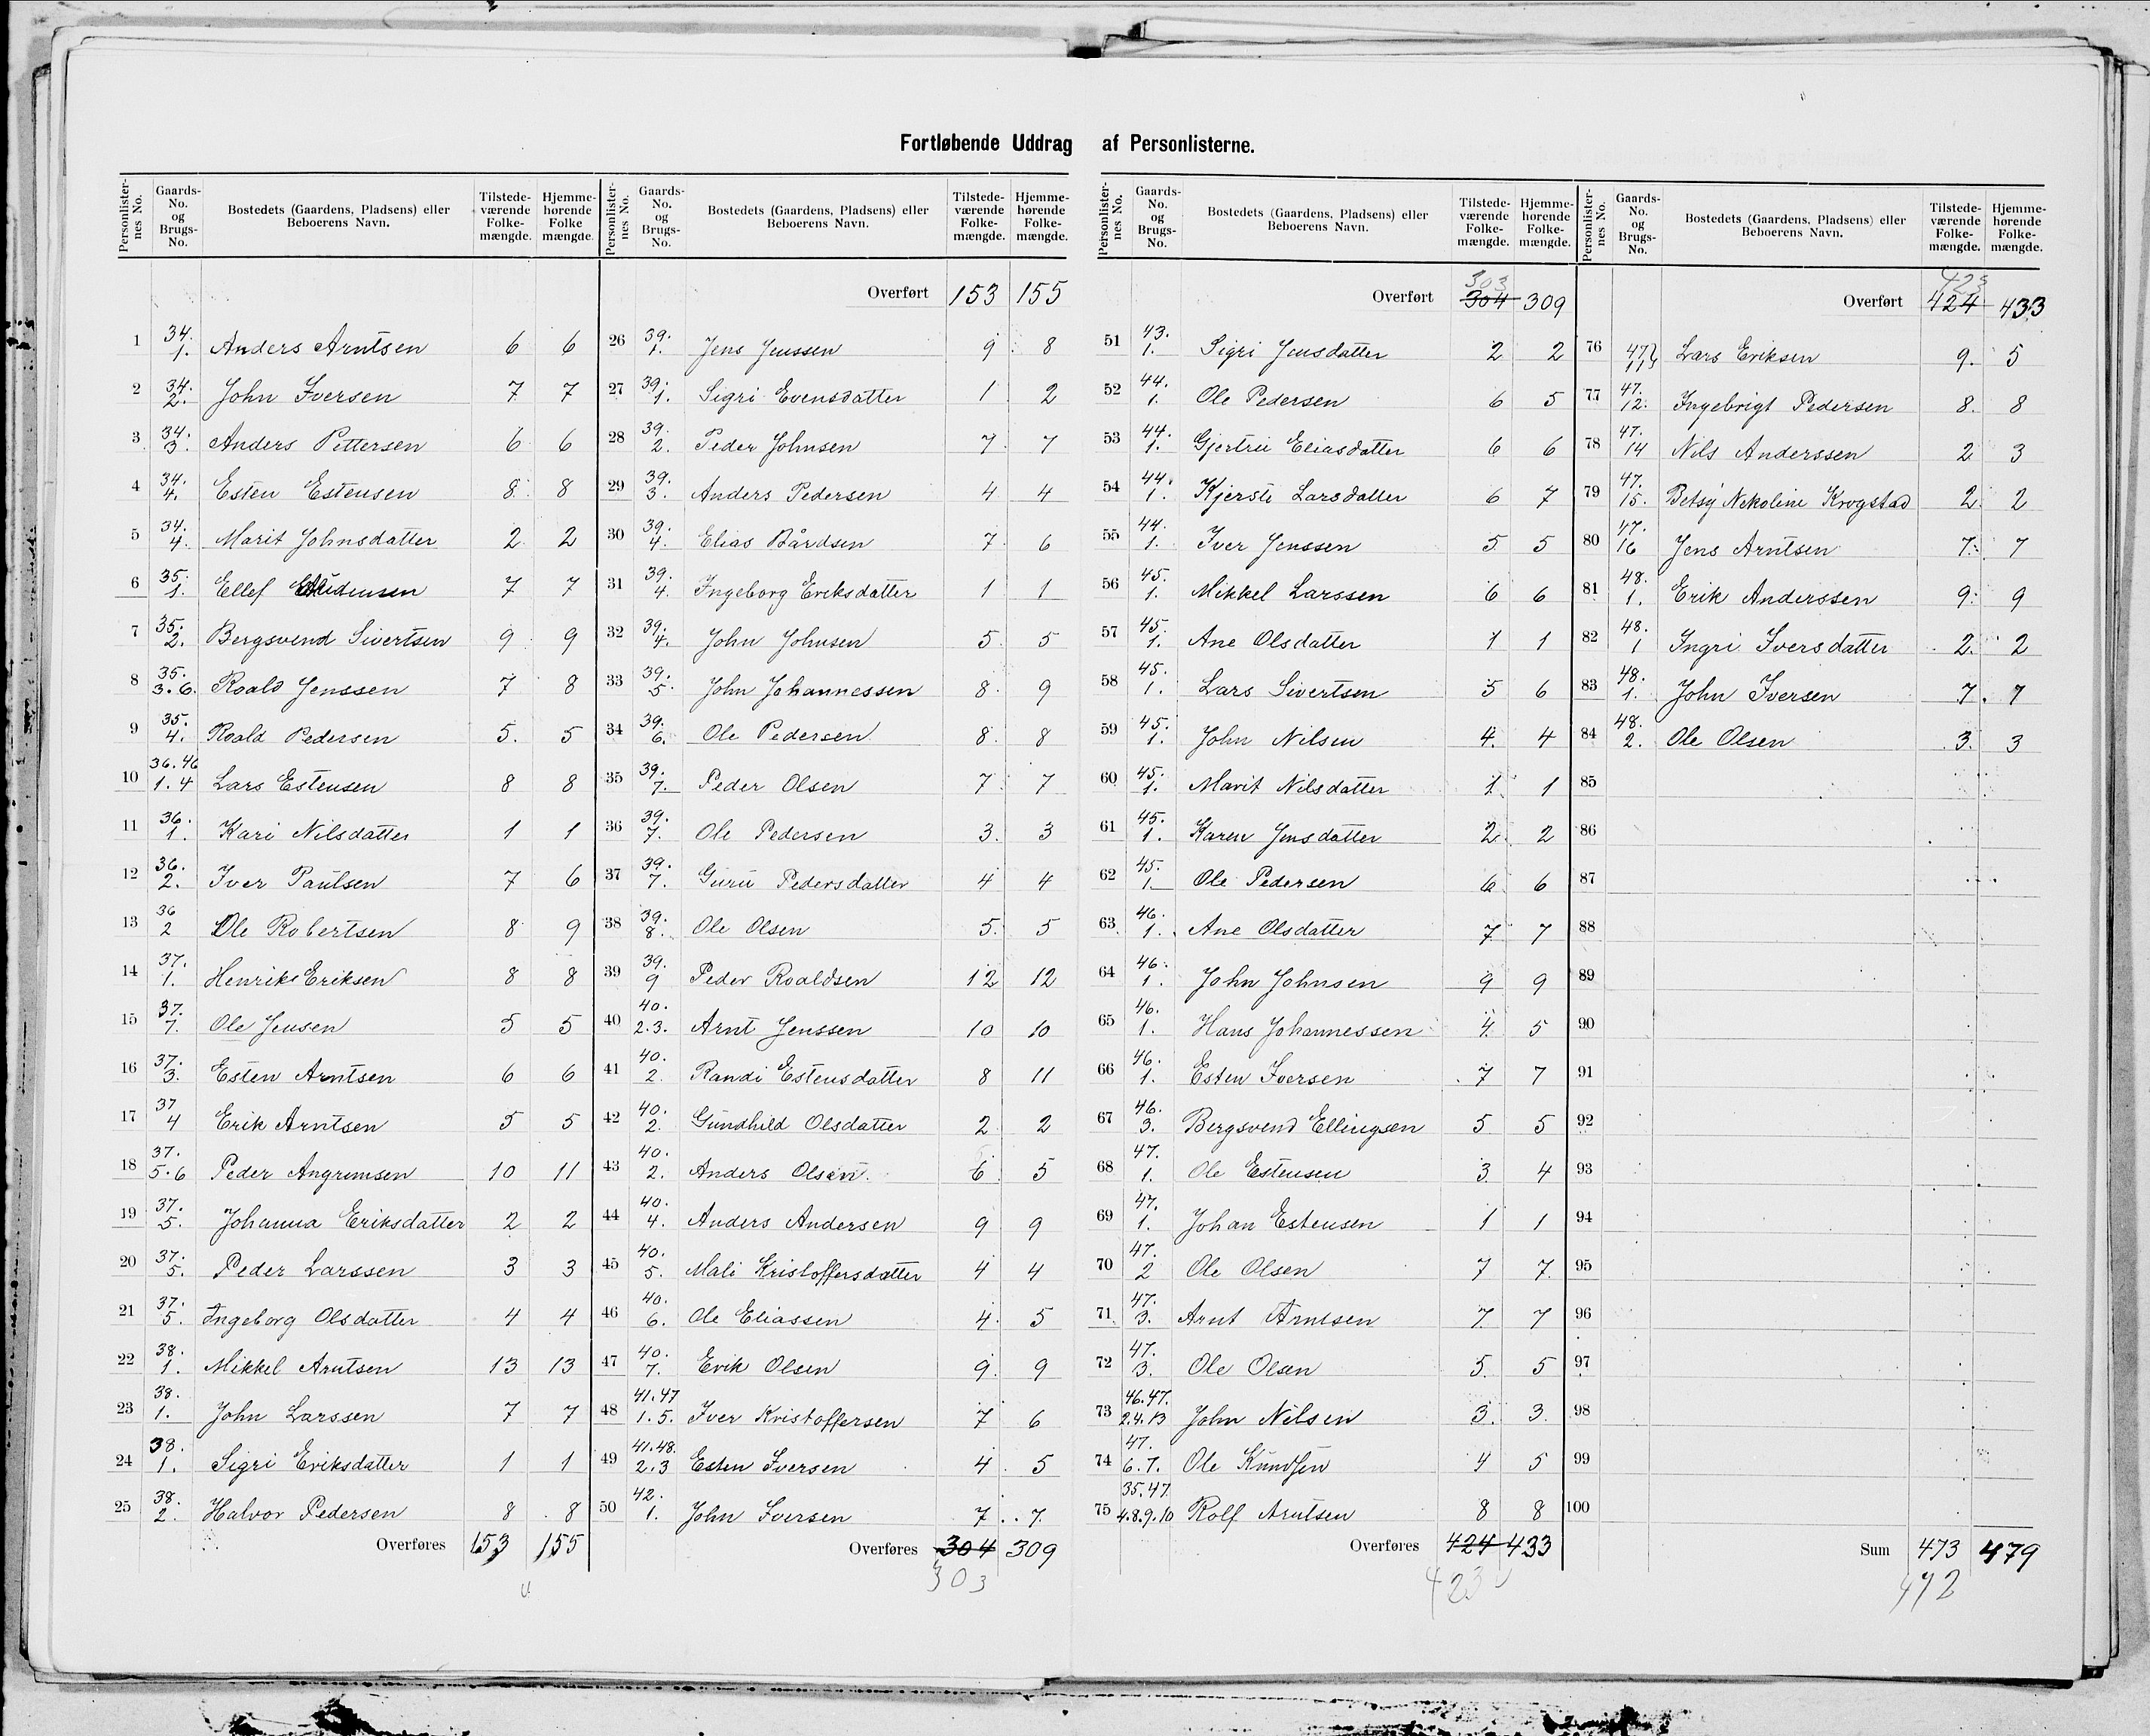 Fortløbende Uddrag af Personlisterne.
Personlisternes No. Gaards-No. og Brugs-No. Bostedets (Gaardens, Pladsens) eller Beboerens Navn. Tilstedeværende Folkemængde. Hjemmehørende Folke mængde.
1 34. 1. Anders Arntsen 6 6
2 34. 2. John Iversen 7 7
3 34. 3. Anders Pettersen 6 6
4 34. 4. Esten Estensen 8 8
5 34. 4. Marit Johnsdatter 2 2
6 35. 1. Ellef 7 7
7 35. 2. Bergsvend Sivertsen 9 9
8 35. 3.6. Roald Jenssen 7 8
9 35. 4. Roald Pedersen 5. 5
10 36.46 1.4 Lars Estensen 8 8
11 36. 1. Kari Nilsdatter 1 1
12 36. 2. Iver Paulsen 7 6
13 36 2 Ole Robertsen 8 9
14 37. 1. Henrik Eriksen 8 8
15 37. 7. Ole Jensen 5 5
16 37. 3. Esten Arntsen 6 6
17 37 4 Erik Arntsen 5 5
18 37. 5.6 Peder Angrimsen 10 11
19 37. 5. Johanna Eriksdatter 2 2
20 37. 5. Peder Larssen 3 3
21 37. 5. Ingeborg Olsdatter 4 4
22 38. 1. Mikkel Arntsen 13 13
23 38. 1. John Larssen 7 7
24 38. 1. Sigri Eriksdatter 1 1
25 38. 2. Halvor Pedersen 8 8
Overføres 153 155
Personlisternes No. Gaards-No. og Brugs-No. Bostedets (Gaardens, Pladsens) eller Beboerens Navn. Tilstedeværende Folkemængde. Hjemmehørende Folkemængde.
Overført 153 155
26 39. 1. Jens Jenssen 9 8
27 39. 1. Sigri Evensdatter 1 2
28 39. 2. Peder Johnsen 7 7
29 39. 3. Anders Pedersen 4 4
30 39. 4. Elias Bårdsen 7 6
31 39. 4. Ingeborg Eriksdatter 1 1
32 39. 4. John Johnsen 5 5
33 39. 5. John Johannessen 8 9
34 39. 6. Ole Pedersen 8 8
35 39. 7. Peder Olsen 7 7
36 39. 7. Ole Pedersen 3 3
37 39. 7. Guru Pedersdatter 4 4
38 39. 8. Ole Olsen 5 5
39 39. 9 Peder Roaldsen 12 12
40 40. 2.3. Arnt Jenssen 10 10
41 40. 2. Randi Estensdatter 8 11
42 40. 2. Gundhild Olsdatter 2 2
43 40. 2. Anders Olsen 6 5
44 40. 4. Anders Andersen 9 9
45 40. 5. Mali Kristoffersdatter 4 4
46 40. 6. Ole Eliassen 4 5
47 40. 7. Erik Olsen 9 9
48 41.47 1.5. Iver Kristoffersen 7 6
49 41.48. 2.3 Esten Iversen 4 5
50 42. 1. John Iversen 7 7
Overføres 304 309
303
Personlisternes No. Gaards-No. og Brugs-No. Bostedets (Gaardens, Pladsens) eller Beboerens Navn. Tilstedeværende Folkemængde. Hjemmehørende Folkemængde.
303
Overført 304 309
51 43. 1. Sigri Jensdatter 2 2
52 44. 1. Ole Pedersen 6 5
53 44. 1. Gjertru Eliasdatter 6 6
54 44. 1. Kjersti Larsdatter 6 7
55 44. 1. Iver Jenssen 5 5
56 45. 1. Mikkel Larssen 6 6
57 45. 1. Ane Olsdatter 1 1
58 45. 1. Lars Sivertsen 5 6
59 45. 1. John Nilsen 4. 4
60 45. 1. Marit Nilsdatter 1 1
61 45. 1. Karen Jensdatter 2 2
62 45. 1. Ole Pedersen 6 6
63 46. 1. Ane Olsdatter 7 7
64 46. 1. John Johnsen 9 9
65 46. 1. Hans Johannessen 4 5
66 46. 1. Esten Iversen 7 7
67 46. 3. Bergsvend Ellingsen 5 5
68 47. 1. Ole Estensen 3 4
69 47. 1. Johan Estensen 1 1
70 47. 2 Ole Olsen 7 7
71 47. 3. Arnt Arntsen 7 7
72 47. 3. Ole Olsen 5 5
73 46.47. 2.4.13 John Nilsen 3 3
74 47. 6.7. Ole Kundsen 4 5
75 35.47 4.8.9.10 Rolf Arntsen 8 8
Overføres 424 433
423
Personlisternes No. Gaards-No. og Brugs-No. Bostedets (Gaardens, Pladsens) eller Beboerens Navn. Tilstedeværende Folkemængde. Hjemmehørende Folkemængde.
423
Overført 424 433
76 47 11 Lars Eriksen 9. 5
77 47. 12. Ingebrigt Pedersen 8. 8
78 47. 14 Nils Anderssen 2 3
79 47. 15. Betsy Nekoline Krogstad 2 2
80 47. 16 Jens Arntsen 7. 7
81 48. 1. Erik Anderssen 9. 9
82 48. 1 Ingri Iversdatter 2. 2
83 48. 1. John Iversen 7. 7
84 48. 2. Ole Olsen 3. 3
85
86
87
88
89
90
91
92
93
94
95
96
97
98
99
100
Sum 473 479
472